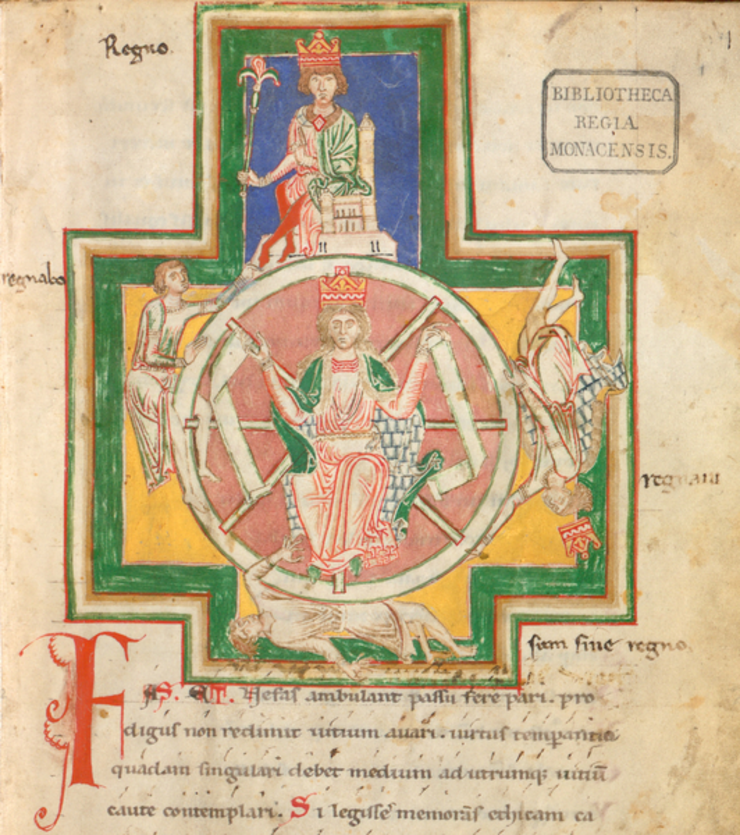 Regno.
BIBLIOTHECA
REGIA
MONACENSIS.
regnabo
regnaui
sum sine regno.
FAS. ET. Nefas ambulant passu fere pari. pro
digus non redimit uitium auari. uirtus temperantia
quadam singulari debet medium ad utrumq; uitiū
caute contemplari. Si legisse memorās ethicam ca